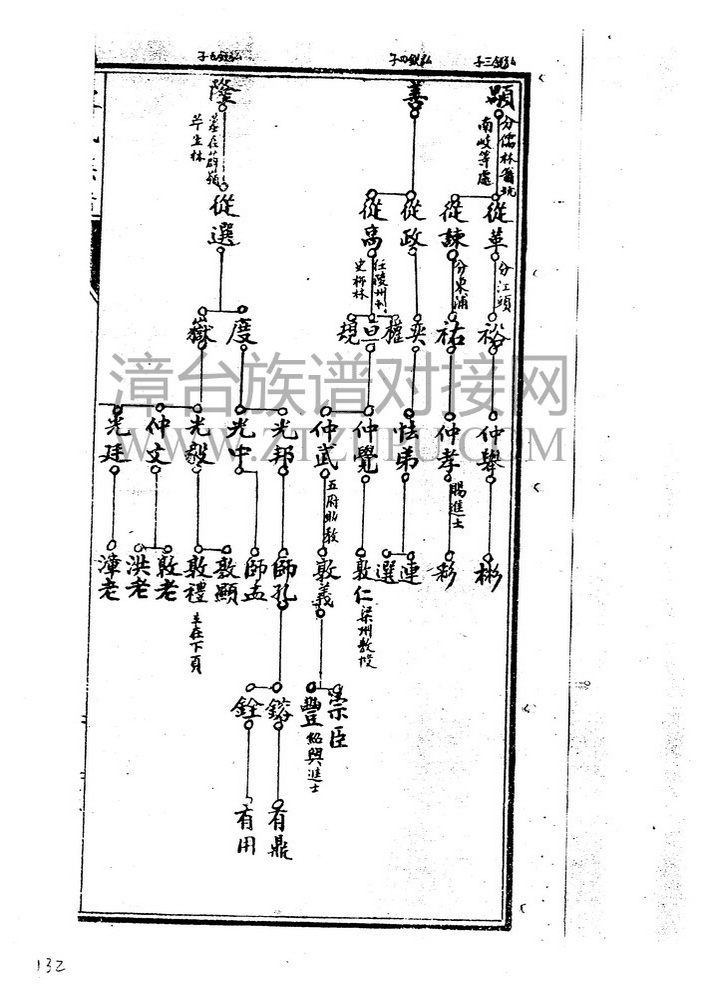 子三
子四
子五
顯
分儒林
南岐等處
善
隆
從革
分江頭
從諫
分東浦
從政
從禼
任陵州
史
從選
裕
祐
奕
權
旦
規
度
嶽
仲舉
仲孝
賜進士
怯弟
仲覺
仲武
五府助教
光邦
光中
光毅
仲文
光廷
彬
彩
連
選
敦仁
梁州教授
敦義
師孔
師孟
敦顯
敦禮
主在下頁
敦老
洪老
漳老
宗臣
豐
紹興進士
鎔
銓
有鼎
有用
漳台族谱对接网
WWW.ZTZUPU.COM
132